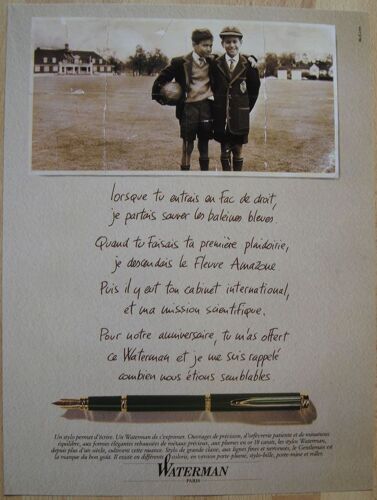 lorsque tu entrais en fac de droit,
je partais sauver les baleines bleues
Quand tu faisais ta première plaidoirie,
je descendais le Fleuve Amazone
Puis il y eut ton cabinet international,
et ma mission scientifique.
Pour notre anniversaire, tu m'as offert
ce Waterman et je me suis rappelé
combien nous étions semblables
Un stylo permet d'écrire. Un Waterman de s'exprimer. Ouvrages de précision, d'orfèvrerie patiente et de minutieux
équilibre, aux formes élégantes rehaussées de métaux précieux, aux plumes en or 18 carats, les stylos Waterman,
depuis plus d'un siècle, cultivent cette nuance. Stylo de grande classe, aux lignes fines et nerveuses, le Gentleman est
la marque du bon goût. Il existe en différents coloris, en version porte plume, stylo-bille, porte-mine et roller.
WATERMAN
PARIS